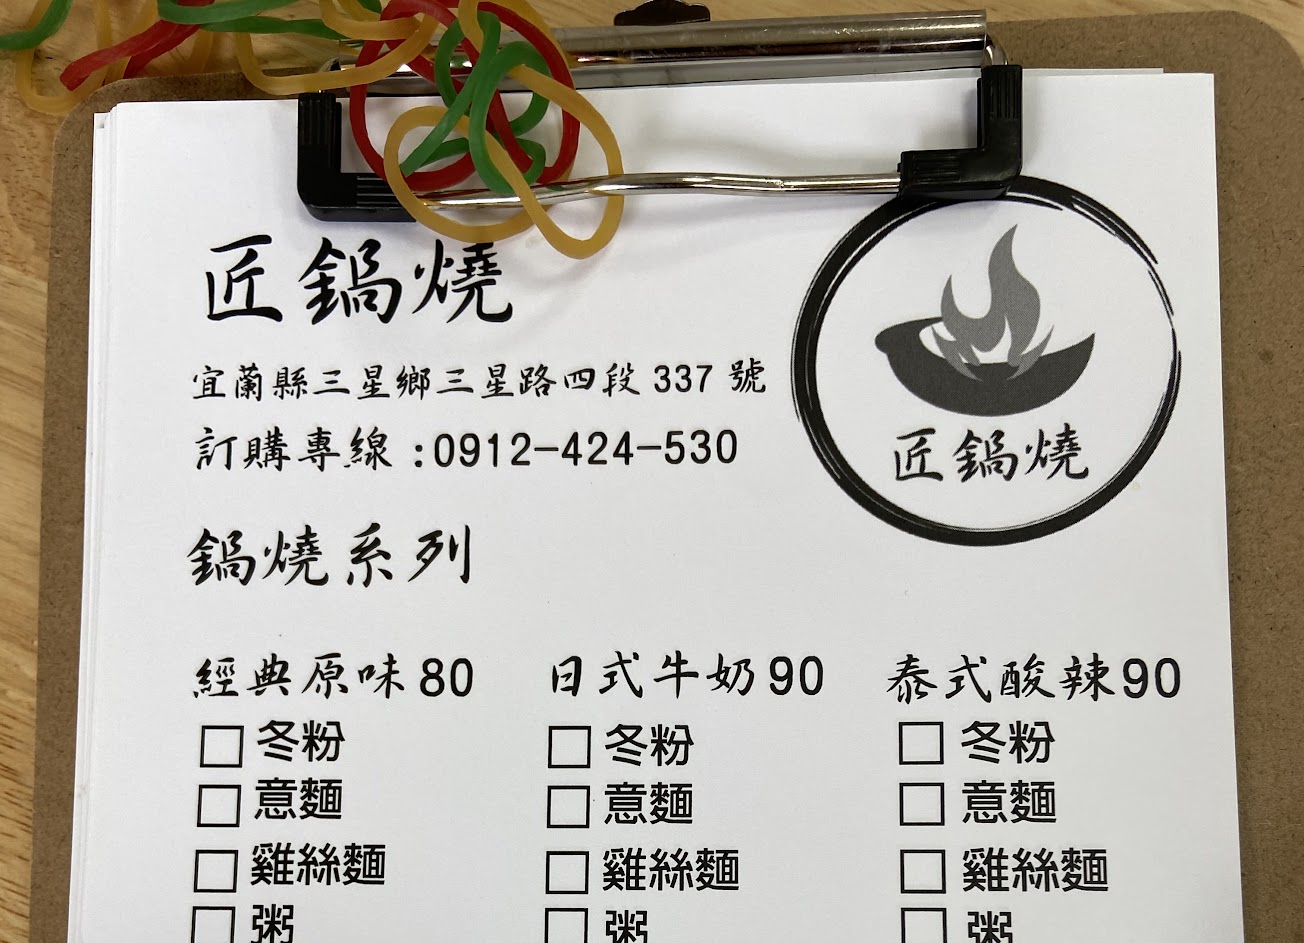 匠鍋燒
宜蘭縣三星鄉三星路四段 337 號
訂購專線 :0912-424-530
匠鍋燒
鍋燒系列
經典原味80 日式牛奶90 泰式酸辣90
□冬粉 □冬粉 □冬粉
□意麵 □意麵 □意麵
□雞絲麵 □雞絲麵 □雞絲麵
□粥 □粥 □粥